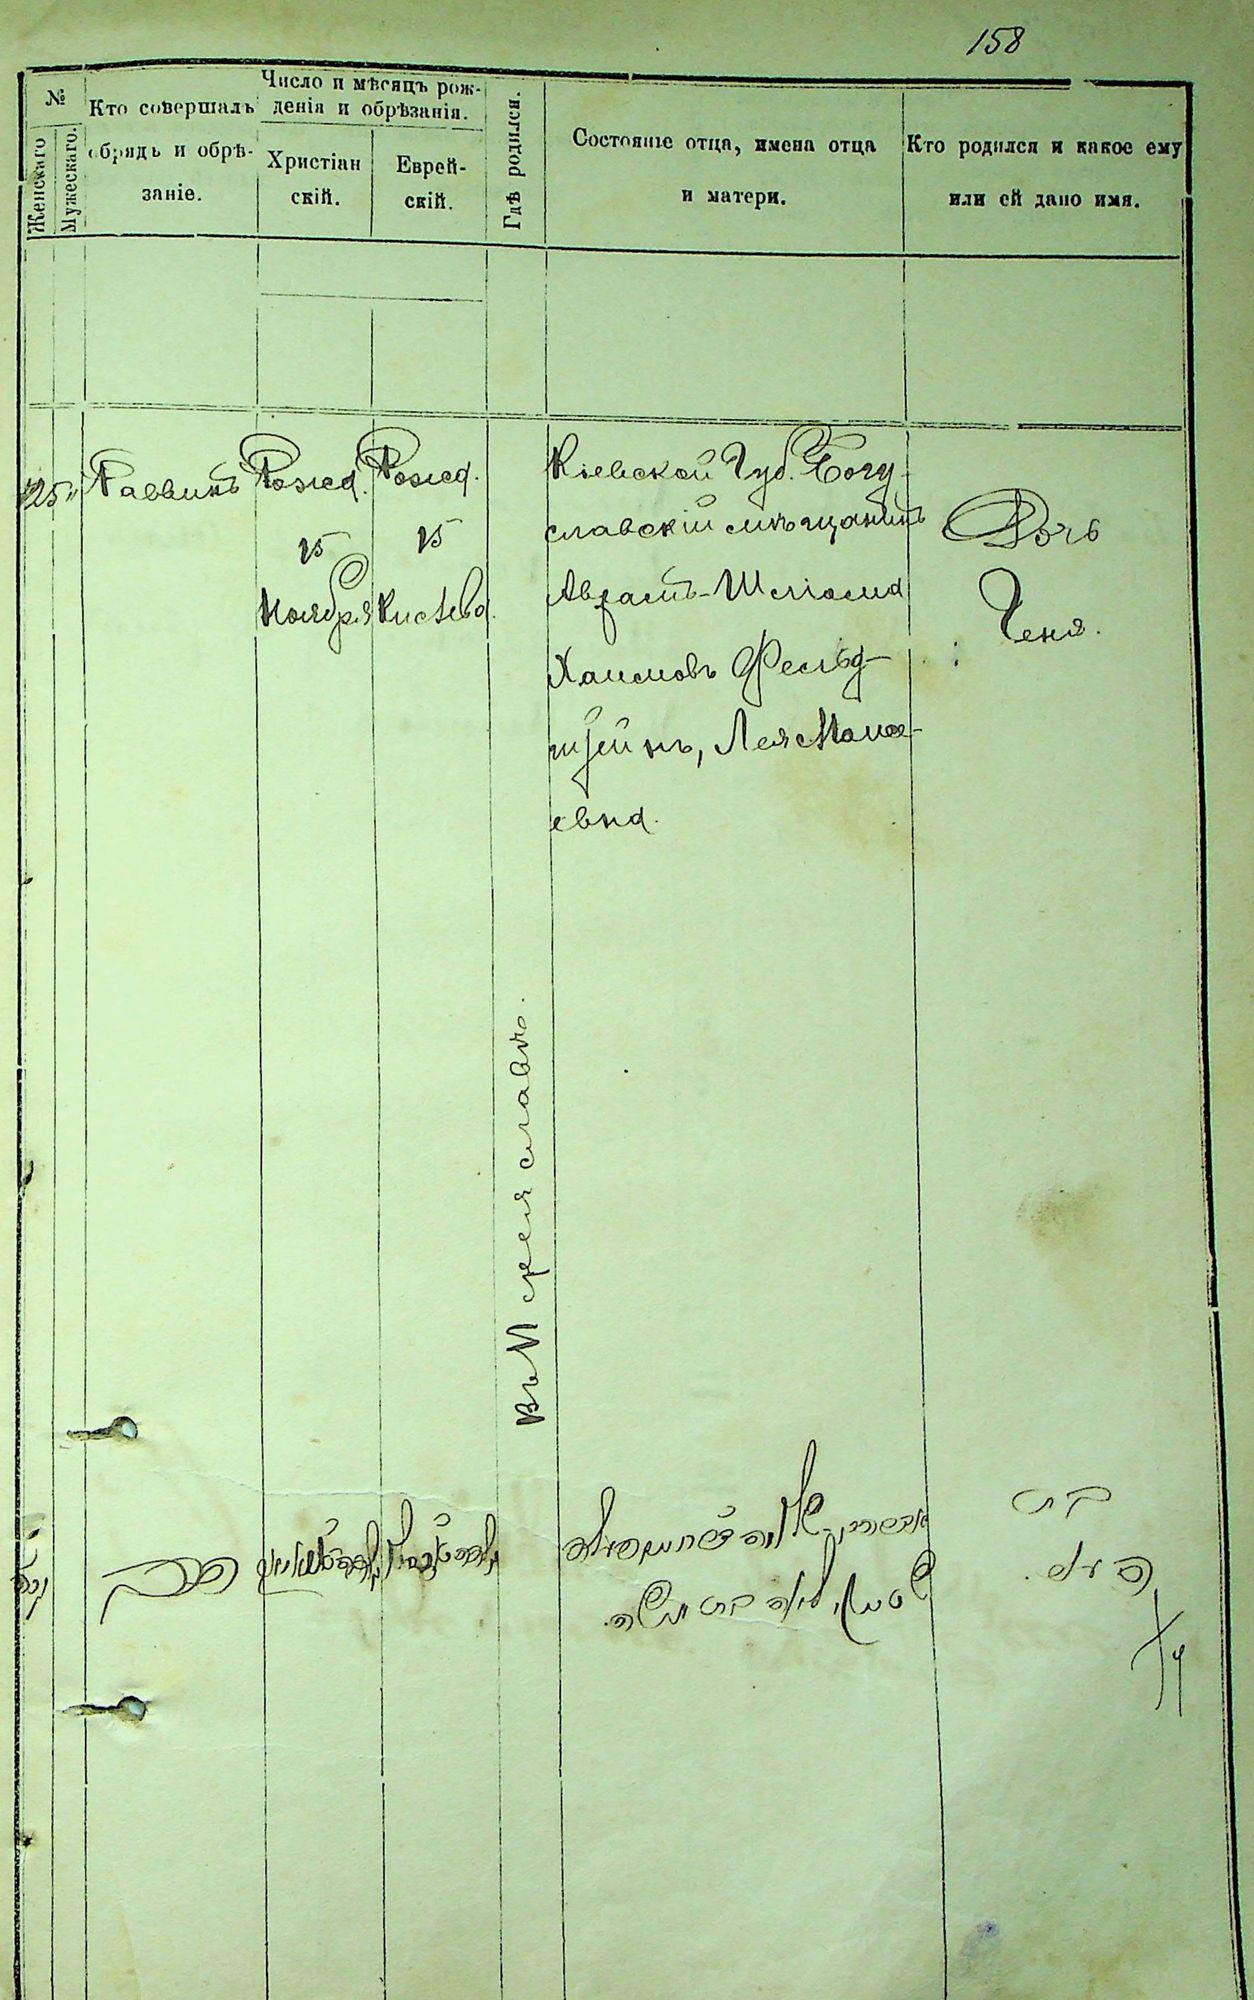 158
№
Женскаго
Мужескаго.
Кто совершалъ
обрядъ и обрѣ-
заніе.
Число и мѣсяцъ рож-
денія и обрѣзанія.
Христіан
скій.
Еврей-
скій.
Гдѣ родился.
Состояніе отца, имена отца
и матери.
Кто родился и какое ему
или ей дано имя.
125
Раввинъ
Рожд.
15
Ноября
Рожд.
15
Кислева.
Въ Переяславлѣ.
Кіевской Губ. Богу-
славскій мѣщанинъ
Аврамъ-Шліома
Хаимовъ Фельд-
штейнъ, Лея Моше-
евна.
Дочь
Геня.
בת
לאה בת משה.